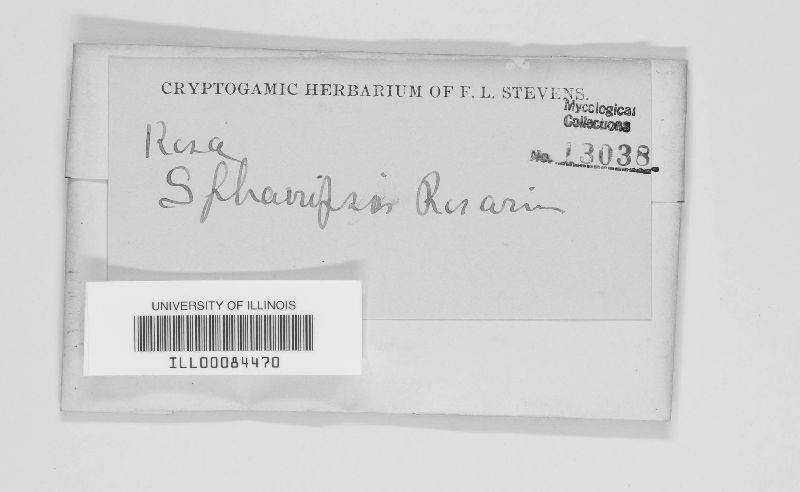 CRYPTOGAMIC HERBARIUM OF F. L. STEVENS.
Mycological
Collections
No. 13038
Rosa
Sphaeropsis Rosarum
UNIVERSITY OF ILLINOIS
ILL00084470